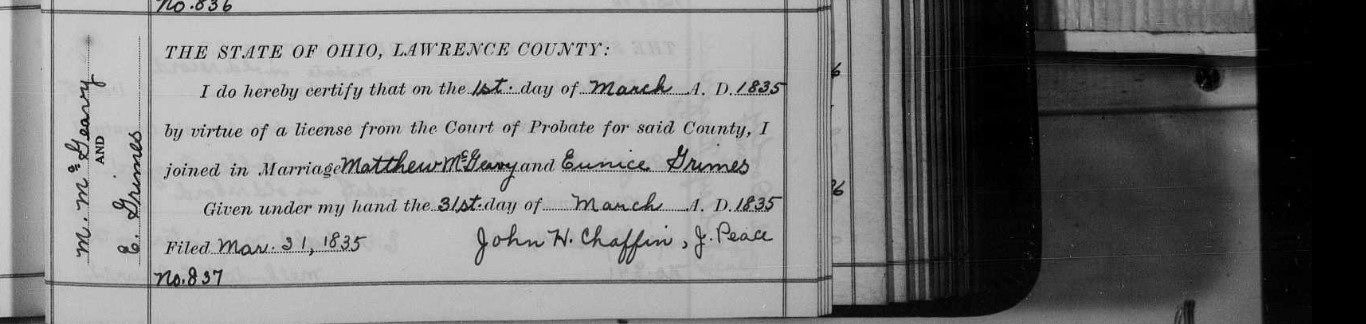 No.836
M. McGeavy
AND
E. Grimes
THE STATE OF OHIO, LAWRENCE COUNTY:
I do hereby certify that on the 1st. day of March A. D. 1835
by virtue of a license from the Court of Probate for said County, I
joined in Marriage Matthew McGeavy and Eunice Grimes
Given under my hand the 31st. day of March A. D. 1835
Filed Mar. 31, 1835 John H. Chaffin, J. Peace
No.837